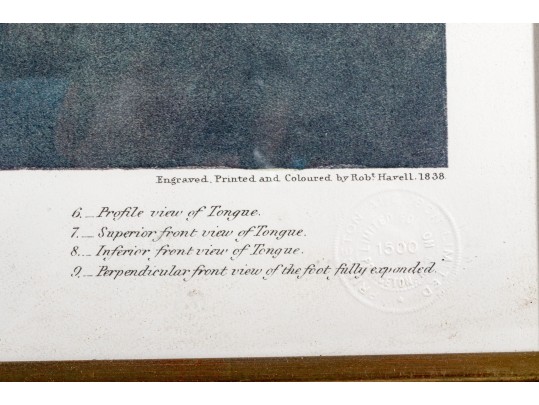 Engraved, Printed and Coloured by Robt. Havell. 1838.
6._ Profile view of Tongue.
7._ Superior front view of Tongue.
8._ Inferior front view of Tongue.
9._ Perpendicular front view of the foot fully exponded.
1500